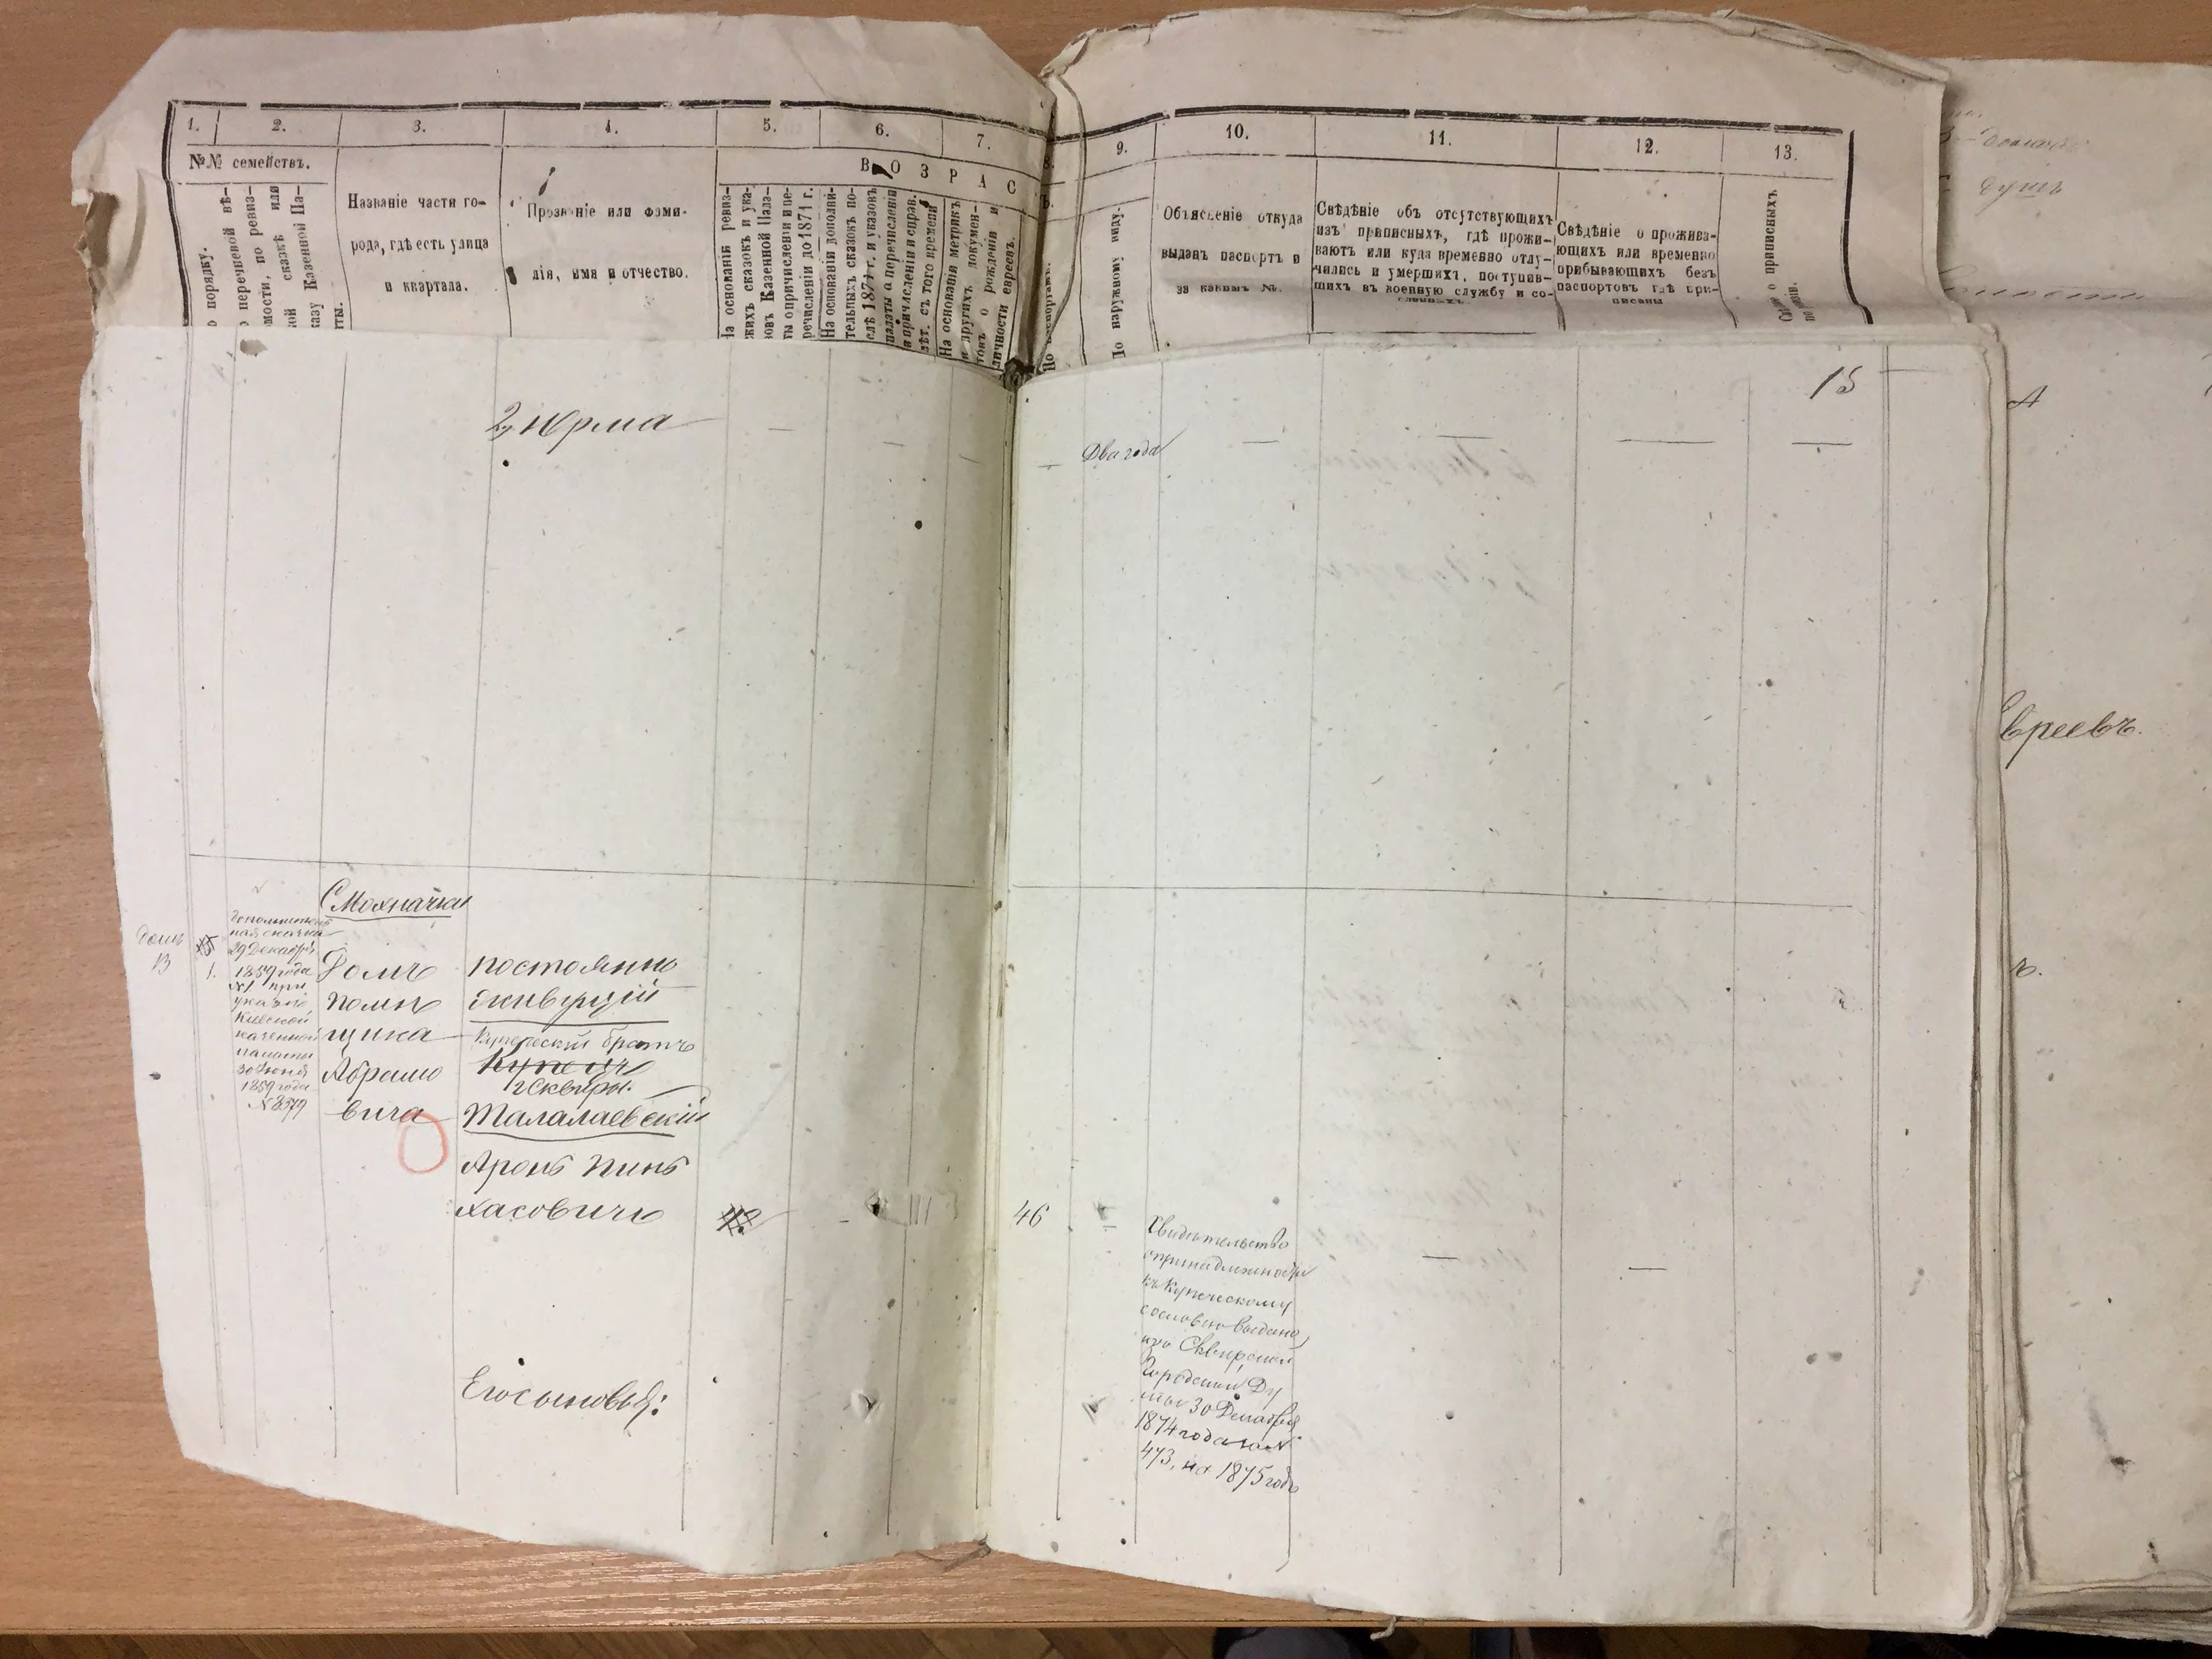 1. 2. 3. 4. 5. 6. 7.
№№ семействъ.
ВОЗРАС
По порядку.
По перечневой вѣ-
домости, по ревиз-
ской сказкѣ или
указу Казенной Па-
латы.
Названіе части го-
рода, гдѣ есть улица
и квартала.
Прозваніе или фами-
лія, имя и отчество.
На основаніи ревиз-
скихъ сказокъ и ука-
зовъ Казенной Пала-
ты о причисленіи и пе-
речисленіи до 1871 г.
На основаніи дополни-
тельныхъ сказокъ по-
слѣ 1871 г. и указовъ
палаты о перечисленіи
и причисленіи и справ.
лѣт. съ того времени
На основаніи метрикъ
и другихъ докумен-
товъ о рожденіи и
личности евреевъ.
8. 9. 10. 11. 12. 13.
Ъ.
По паспортамъ.
По наружному виду.
Объясненіе откуда
выданъ паспортъ и
за какимъ №.
Свѣдѣніе объ отсутствующихъ
изъ приписныхъ, гдѣ прожи-
ваютъ или куда временно отлу-
чились и умершихъ, поступив-
шихъ въ военную службу и со-
сланныхъ.
Свѣдѣніе о прожива-
ющихъ или временно
прибывающихъ безъ
паспортовъ гдѣ при-
писаны
о приписныхъ
15
2, Юрма — — — — Два года — — — —
С Мохначки
Домъ
13
1.
дополнитель
ная сказка
29 Декабря
1859 года
№1 при
указѣ
Кіевской
казенной
палаты
30 Іюня
1859 года
№ 8379
Домъ
помѣ
щика
Абрамо
вича
постоянно
живущій
Купеческій братъ
Купецъ
г Сквиры.
Талалаевскій
Аронъ Пинъ
хасовичъ
46
Свидѣтельство
о принадлежности
къ Купеческому
сословію выдано
изъ Сквирской
Городской Ду
мы 30 Декабря
1874 года за №
473, на 1875 годъ
Его сыновья:
душъ
Евреевъ.
ъ.